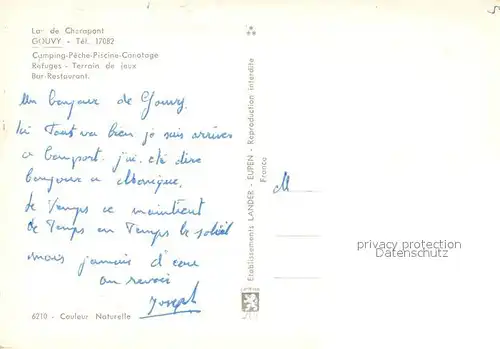 Lac de Cherapont
GOUVY - Tél. 17082
Camping-Pêche-Piscine-Canotage
Refuges - Terrain de jeux
Bar-Restaurant.
Un bonjour de Gouvy.
Ici Tout va bien je suis arrivés
a bonport. j'ai été dire
bonjour a Monique.
le Temps ce maintient
de Temps en Temps le soleil
mais jamais d'eau
au revoir
Joseph
6210 - Couleur Naturelle
Etablissements LANDER - EUPEN - Reproduction interdite
France
M
privacy protection
Datenschutz